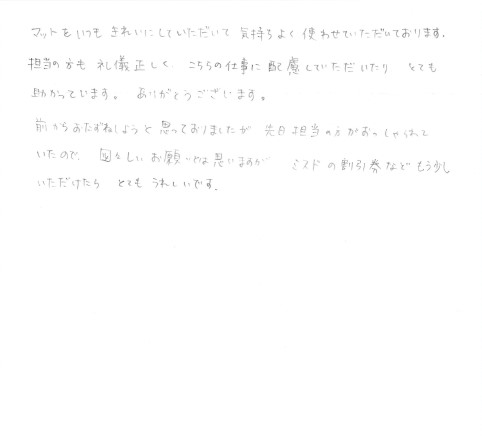 マットをいつも きれいにしていただいて 気持ちよく 使わせていただいております.
担当の方も 礼儀正しく、こちらの仕事に 配慮していただいたり とても
助かっています。 ありがとうございます。
前からおたずねしようと 思っておりましたが 先日 担当の方がおっしゃられて
いたので、図々しい お願いかな 思いますが ミスド の割引券など もう少し
いただけたら とても うれしいです.